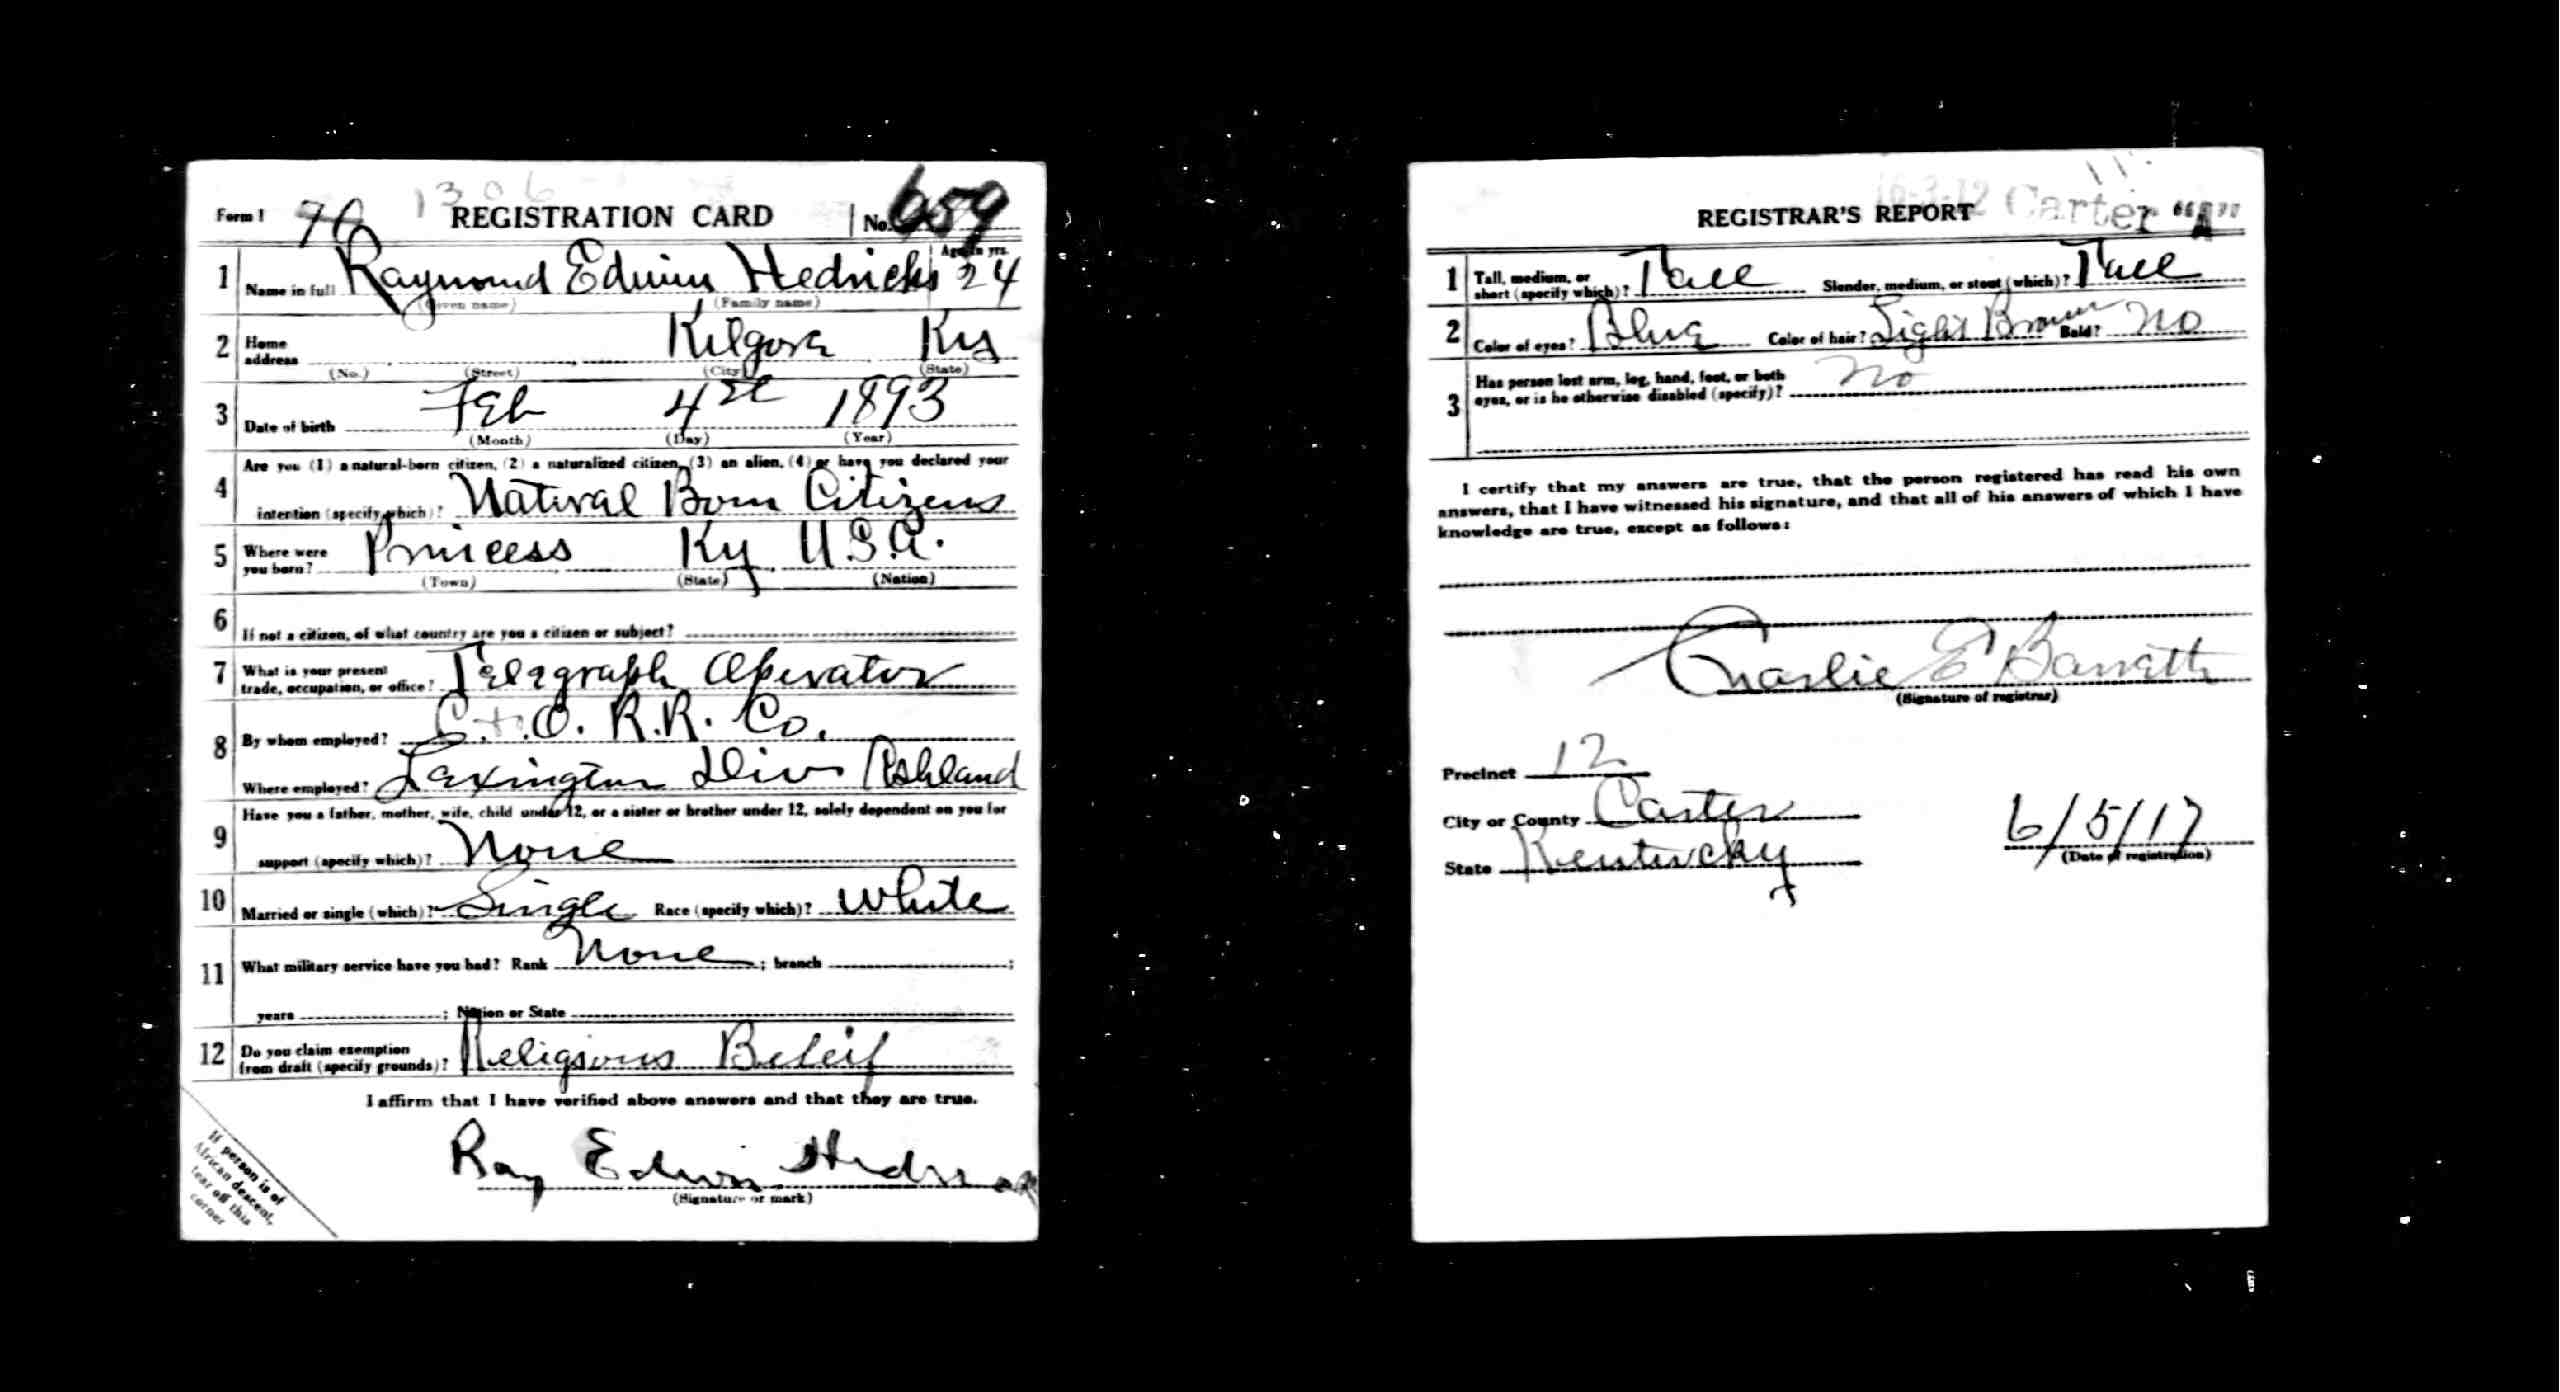 1306
Form 1 70 REGISTRATION CARD No. 659
1 Name in full Raymond Edwin Hedricks Age, in yrs. 24
(Given name) (Family name)
2 Home address Kilgore Ky
(No.) (Street) (City) (State)
3 Date of birth Feb 4th 1893
(Month) (Day) (Year)
4 Are you (1) a natural-born citizen, (2) a naturalized citizen, (3) an alien, (4) or have you declared your
intention (specify which)? Natural Born Citizens
5 Where were you born? Princess Ky U.S.A.
(Town) (State) (Nation)
6 If not a citizen, of what country are you a citizen or subject?
7 What is your present trade, occupation, or office? Telegraph Operator
8 By whom employed? C.+O. R.R. Co.
Where employed? Lexington Div Ashland
9 Have you a father, mother, wife, child under 12, or a sister or brother under 12, solely dependent on you for
support (specify which)? None
10 Married or single (which)? Single Race (specify which)? White
11 What military service have you had? Rank None ; branch ;
years ; Nation or State
12 Do you claim exemption from draft (specify grounds)? Religious Beleif
I affirm that I have verified above answers and that they are true.
Ray Edwin
(Signature or mark)
If person is of
African descent,
tear off this
corner
16-3-12 Carter "A"
REGISTRAR'S REPORT
1 Tall, medium, or short (specify which)? Tall Slender, medium, or stout (which)? Tall
2 Color of eyes? Blue Color of hair? Light Brown Bald? No
3 Has person lost arm, leg, hand, foot, or both eyes, or is he otherwise disabled (specify)? No
I certify that my answers are true, that the person registered has read his own
answers, that I have witnessed his signature, and that all of his answers of which I have
knowledge are true, except as follows:
Charlie E Barrett
(Signature of registrar)
Precinct 12
City or County Carter
State Kentucky
6/5/17
(Date of registration)